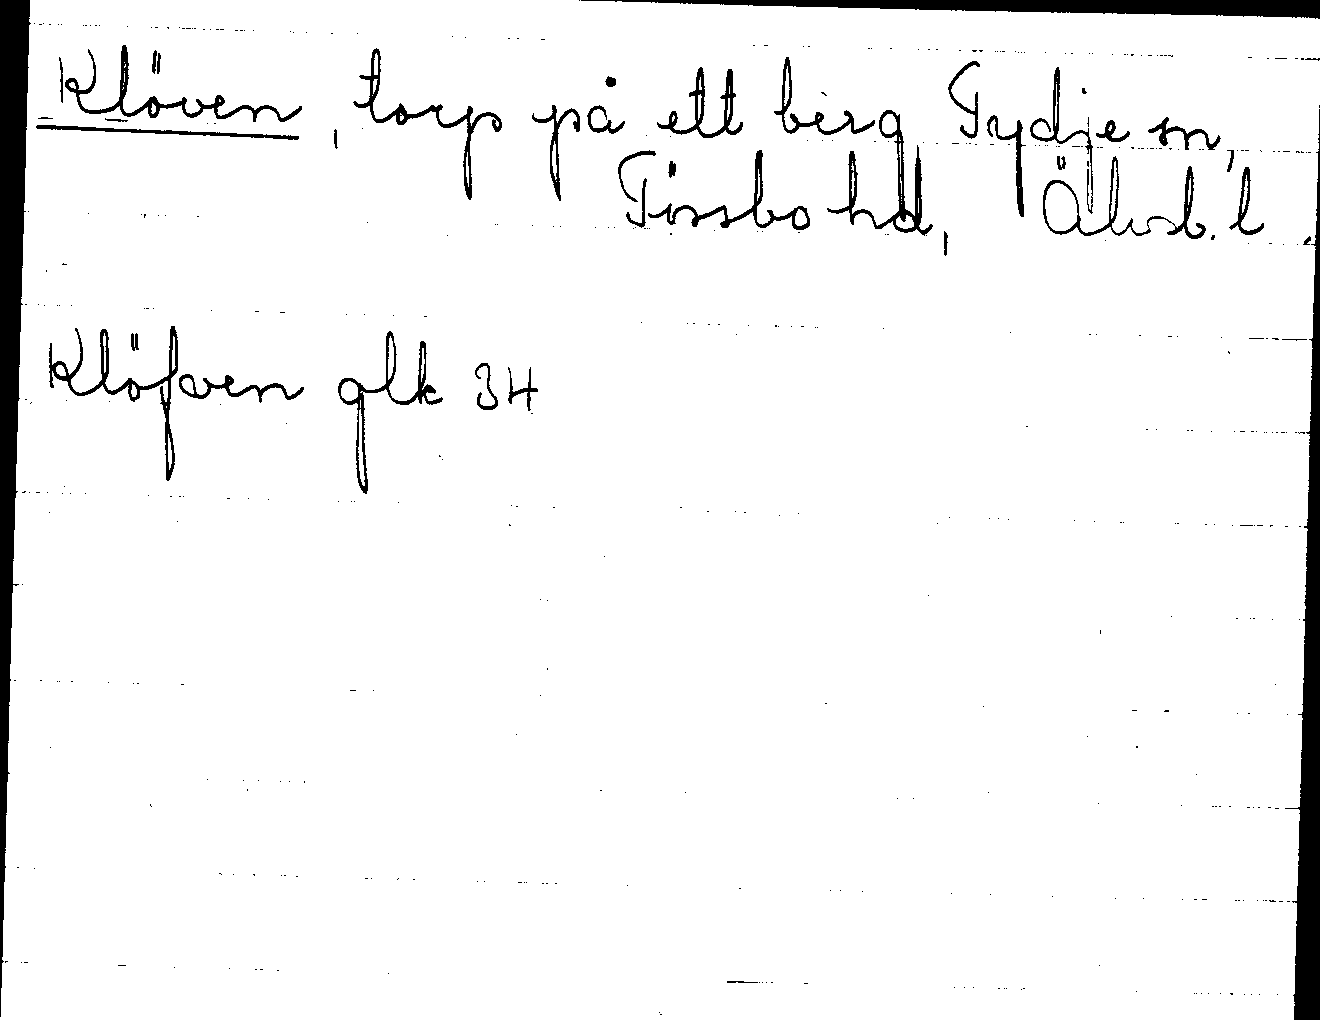 Klöven, torp på ett berg Tydje sn,
Tössbo hd, Älvsb. l.
Klöfven glk 34